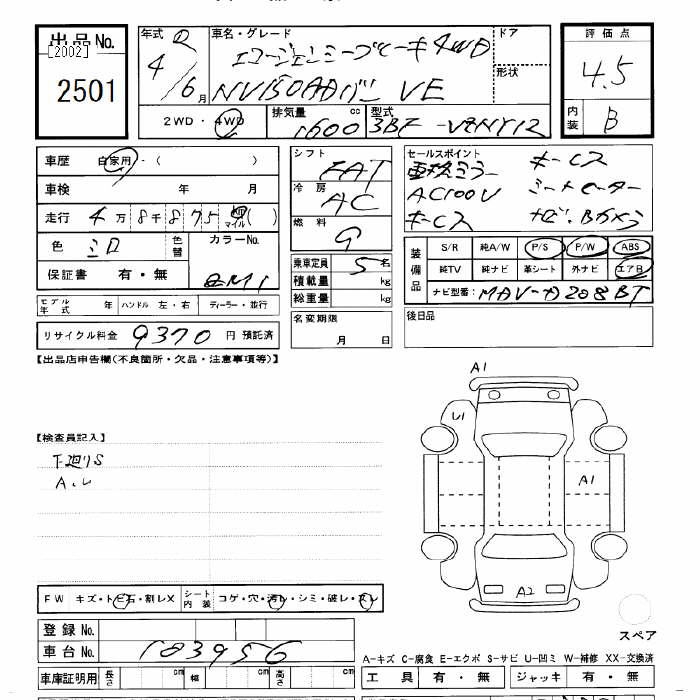 出品 No.
[2002]
2501
年式 R
4/6月
車名・グレード
エマージェンシーブレーキ4WD
NV150ADバン VE
ドア
形状
2WD・4WD
排気量 1600 cc
型式 3BF-VZNY12
評価点
4.5
内装 B
車歴 自家用・( )
車検 年 月
走行 4万8千8757 km マイル ( )
色 シロ 色替
カラーNo.
保証書 有・無
モデル年式 年 ハンドル 左・右 ディーラー・並行
リサイクル料金 9370 円 預託済
シフト FAT
冷房 AC
燃料 G
乗車定員 5名
積載量 kg
総重量 kg
名変期限
月 日
セールスポイント
キーレス
AC100V
シートヒーター
キーレス
ナビ.Bカメラ
装備品
S/R 純A/W P/S P/W ABS
純TV 純ナビ 革シート 外ナビ エアB
ナビ型番:
後日品
【出品店申告欄(不良箇所・欠品・注意事項等)】
【検査員記入】
下廻りS
A.レ
A1
U1
A1
A2
スペア
FW キズ・トビ石・割レX
シート内装 コゲ・穴・汚レ・シミ・破レ・スレ
登録 No.
車台 No. 183956
車庫証明用 長さ cm 幅 cm 高さ cm
A-キズ C-腐食 E-エクボ S-サビ U-凹ミ W-補修 XX-交換済
工具 有・無 ジャッキ 有・無